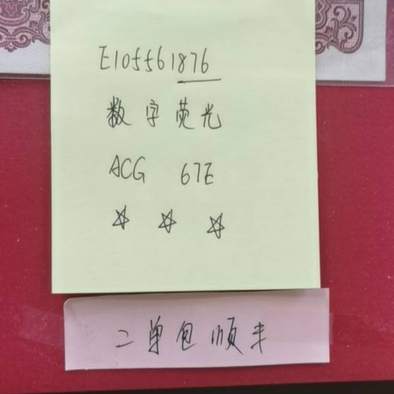 E105561876
数字荧光
ACG 67E
☆ ☆ ☆
二单包顺丰